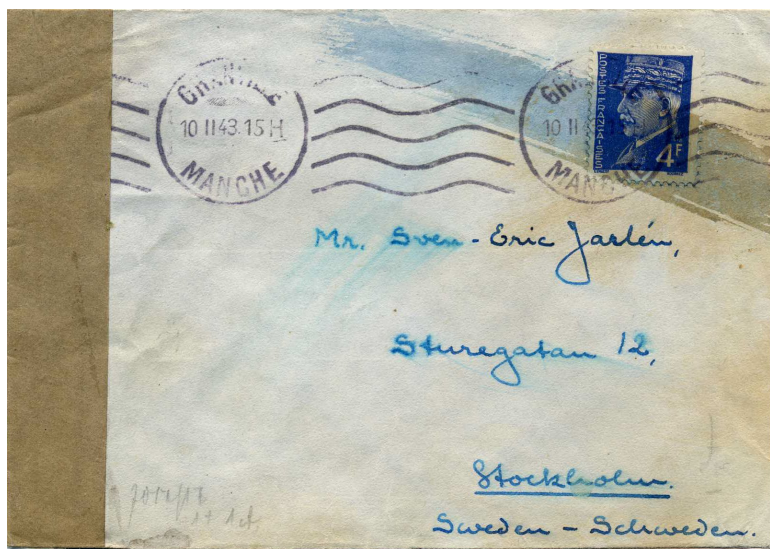 GRANVILLE
10 II 43.15H
MANCHE
GRA
10 II 4
MANCHE
POSTES FRANÇAISES
4F
Mr. Sven-Eric Jarlén,
Sturegatan 12,
Stockholm.
Sweden - Schweden.